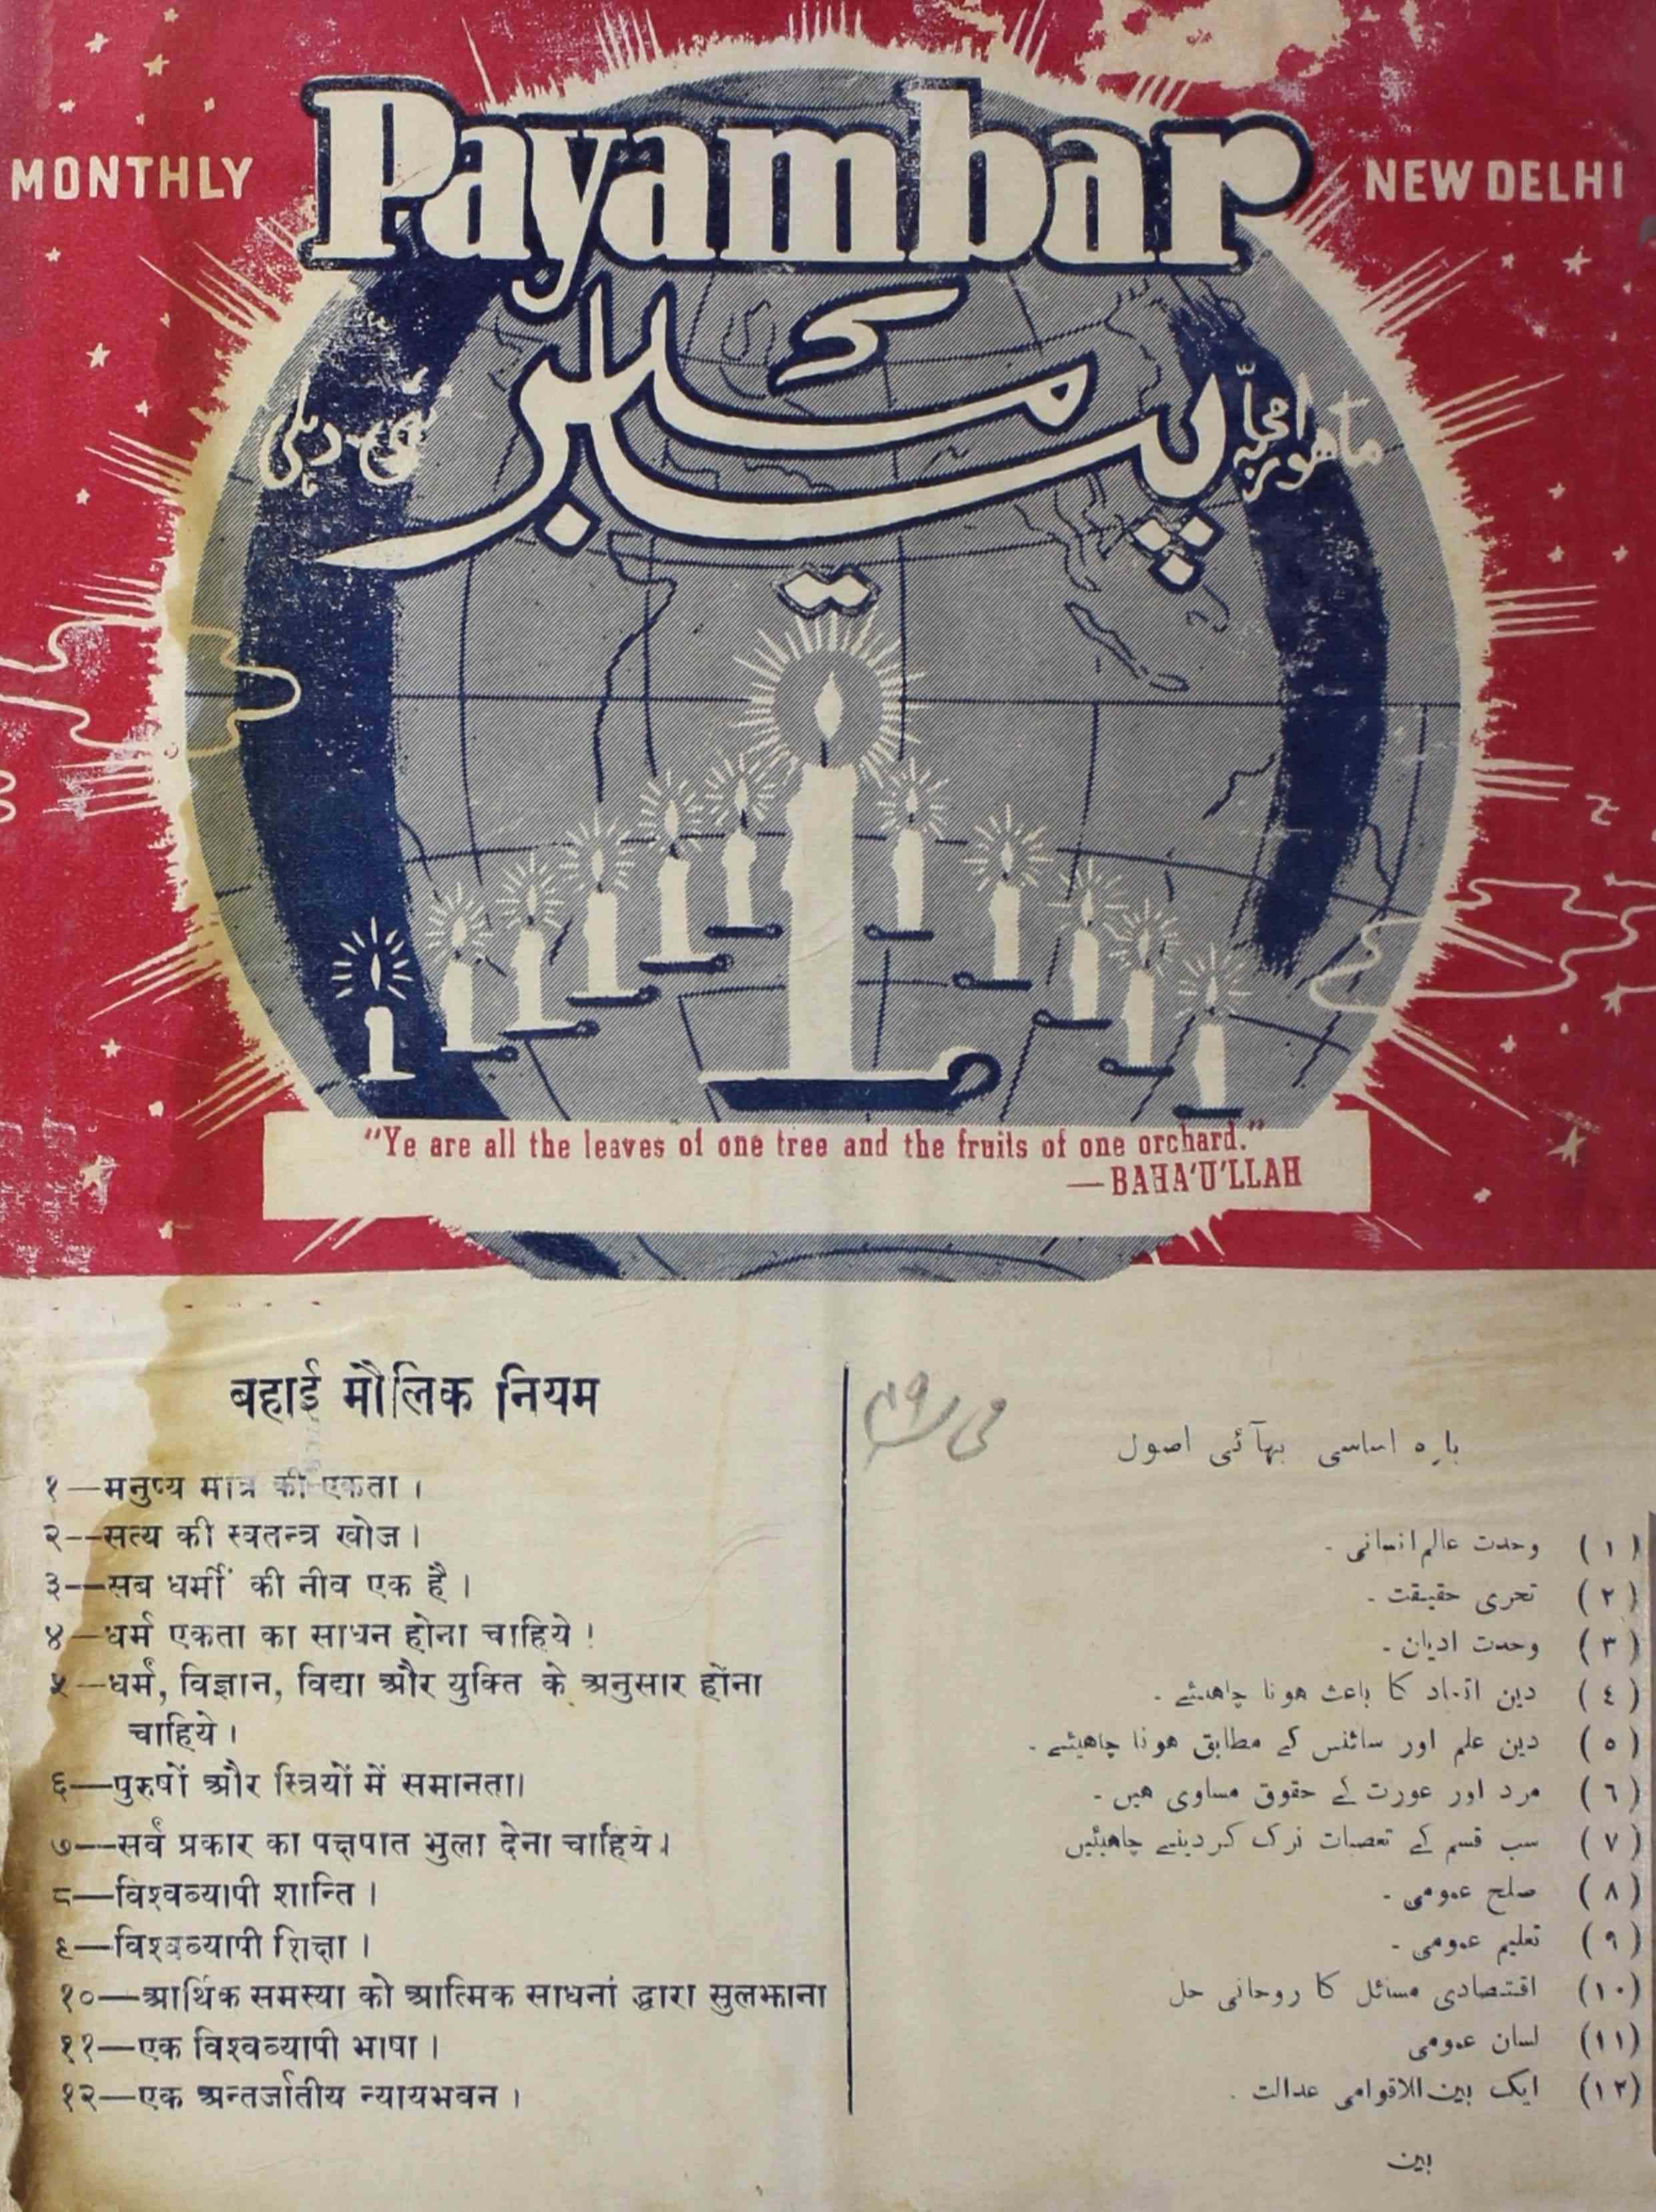 MONTHLY
Payambar
NEW DELHI
پیمبر
نئی دہلی
"Ye are all the leaves of one tree and the fruits of one orchard."
—BAHA'U'LLAH
बहाई मौलिक नियम
१—मनुष्य मात्र की एकता ।
२--सत्य की स्वतन्त्र खोज ।
३--सब धर्मों की नीव एक है ।
४—धर्म एकता का साधन होना चाहिये !
५—धर्म, विज्ञान, विद्या और युक्ति के अनुसार होना
चाहिये ।
६—पुरुषों और स्त्रियों में समानता।
७—सर्व प्रकार का पक्षपात भुला देना चाहिये ।
८—विश्वव्यापी शान्ति ।
९—विश्वव्यापी शिक्षा ।
१०—आर्थिक समस्या को आत्मिक साधनां द्वारा सुलझाना
११—एक विश्वव्यापी भाषा ।
१२—एक अन्तर्जातीय न्यायभवन ।
بارہ اساسی بہآئی اصول
(۱) وحدت عالم انسانی -
(۲) تحری حقیقت -
(۳) وحدت ادیان -
(٤) دین اتحاد کا باعث ہونا چاہئیے -
(۵) دین علم اور سائنس کے مطابق ہونا چاہیئے -
(٦) مرد اور عورت کے حقوق مساوی ہیں -
(۷) سب قسم کے تعصبات ترک کر دینے چاہئیں
(۸) صلح عمومی -
(۹) تعلیم عمومی -
(۱۰) اقتصادی مسائل کا روحانی حل
(۱۱) لسان عمومی
(۱۲) ایک بین الاقوامی عدالت -
بین